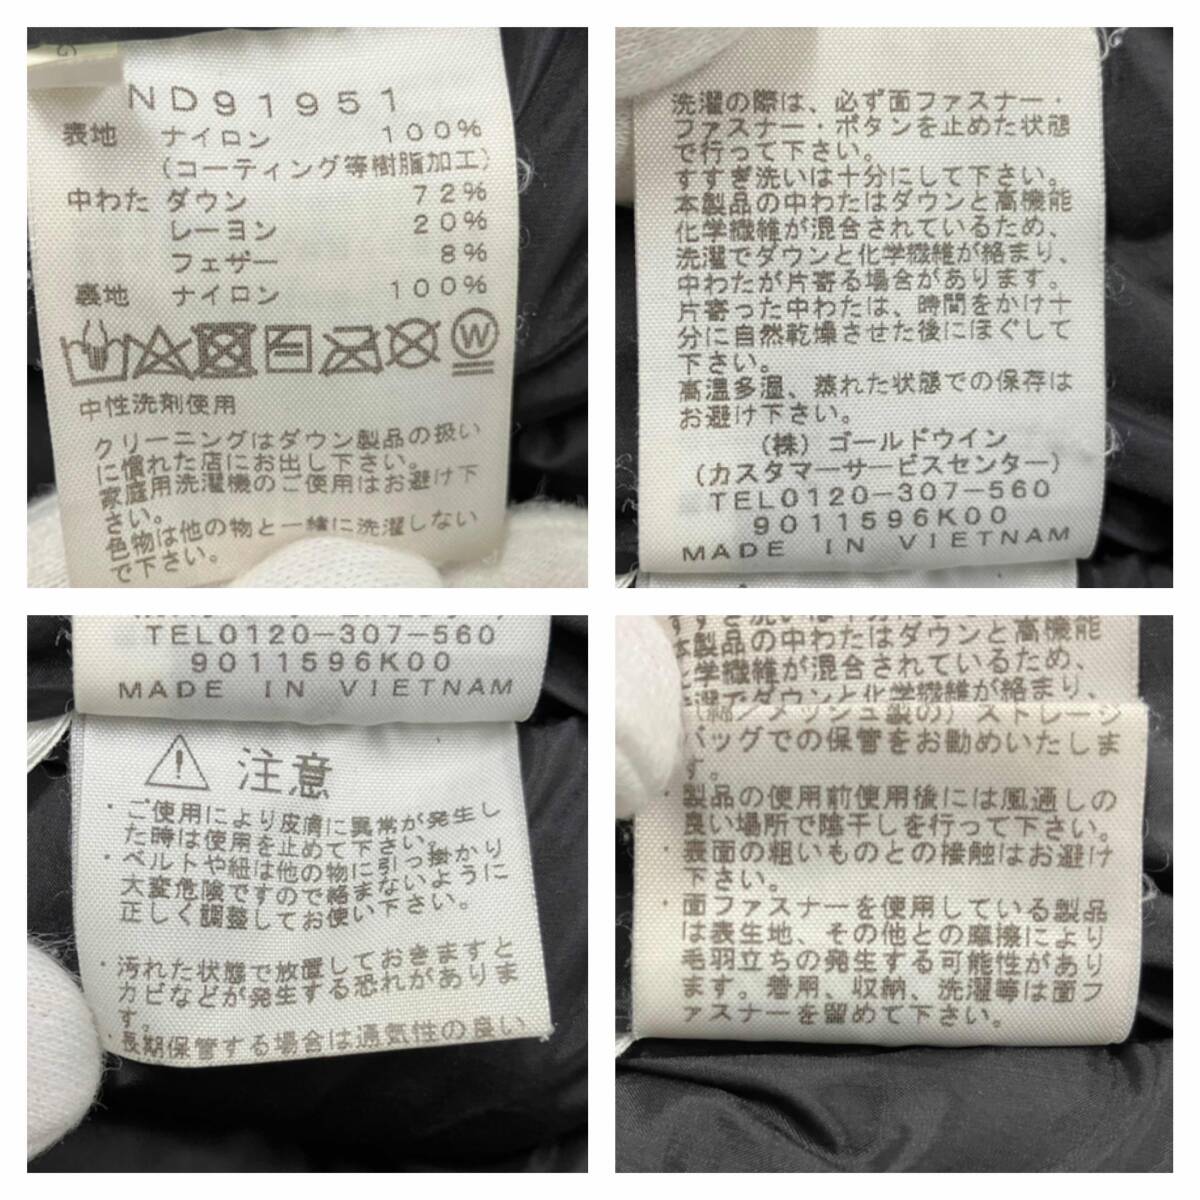 ND91951
表地 ナイロン 100%
(コーティング等樹脂加工)
中わた ダウン 72%
レーヨン 20%
フェザー 8%
裏地 ナイロン 100%
W
中性洗剤使用
クリーニングはダウン製品の扱い
に慣れた店にお出し下さい。
家庭用洗濯機のご使用はお避け下
さい。
色物は他の物と一緒に洗濯しない
で下さい。
洗濯の際は、必ず面ファスナー・
ファスナー・ボタンを止めた状態
で行って下さい。
すすぎ洗いは十分にして下さい。
本製品の中わたはダウンと高機能
化学繊維が混合されているため、
洗濯でダウンと化学繊維が絡まり、
中わたが片寄る場合があります。
片寄った中わたは、時間をかけ十
分に自然乾燥させた後にほぐして
下さい。
高温多湿、蒸れた状態での保存は
お避け下さい。
(株) ゴールドウイン
(カスタマーサービスセンター)
TEL0120-307-560
9011596K00
MADE IN VIETNAM
TEL0120-307-560
9011596K00
MADE IN VIETNAM
注意
・ご使用により皮膚に異常が発生し
た時は使用を止めて下さい。
・ベルトや紐は他の物に引っ掛かり
大変危険ですので絡まないように
正しく調整してお使い下さい。
・汚れた状態で放置しておきますと
カビなどが発生する恐れがありま
す。
・長期保管する場合は通気性の良い
本製品の中わたはダウンと高機能
化学繊維が混合されているため、
洗濯でダウンと化学繊維が絡まり、
(綿/メッシュ製の)ストレージ
バッグでの保管をお勧めいたしま
す。
・製品の使用前使用後には風通しの
良い場所で陰干しを行って下さい。
・表面の粗いものとの接触はお避け
下さい。
・面ファスナーを使用している製品
は表生地、その他との摩擦により
毛羽立ちの発生する可能性があり
ます。着用、収納、洗濯等は面フ
ァスナーを留めて下さい。